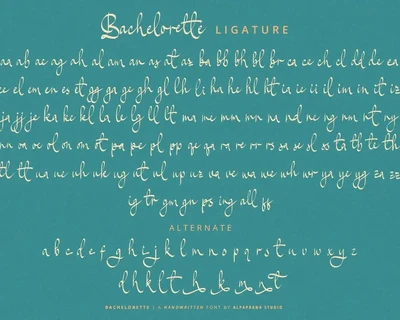 Bachelorette LIGATURE
aa ab ae ag ah al am an as at ax ba bb bh bl br ca ce ch cl dd de ea
ce el em en es et gg ga ge gh gl lh li ha he hl ht ia ie ii il im in it iz
ja jj je ka ke kl la le lg ll lt ma me mm mn na nd ne ng nn nt ny
nn oa oe ol on om ot pa pe pl pp qe qa ra re rr rs sa se sl ss ta tb te th
tl tt ua ue uh uk ug ut ul up uz va ve wa we wh wr ya ye yg za zz
ig tr gm gn ps ing all ff
ALTERNATE
a b c d e f g h i j k l m n o p q r s t u v w x y z
d h k l t h k m n t
BACHELORETTE | A HANDWRITTEN FONT BY ALPAPRANA STUDIO